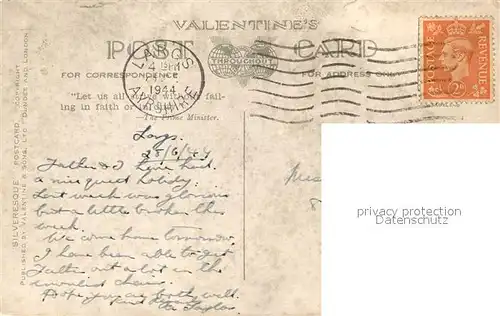 VALENTINE'S
POST CARD
FOR CORRESPONDENCE
THROUGHOUT
FOR ADDRESS ONLY
LARGS
1944
AYRSHIRE
POSTAGE REVENUE
2D
"Let us all
ing in faith or
—The Prime Minister.
SILVERESQUE POSTCARD. COPYRIGHT.
PUBLISHED BY VALENTINE & SONS, LTD., DUNDEE AND LONDON.
Largs.
28/6/44
Father & I have had
a nice quiet holiday.
Last week was glorious
but a little broken this
week.
We come home tomorrow.
I have been able to get
Father out a lot in the
chair.
Hope you are both well.
Kind
privacy protection
Datenschutz